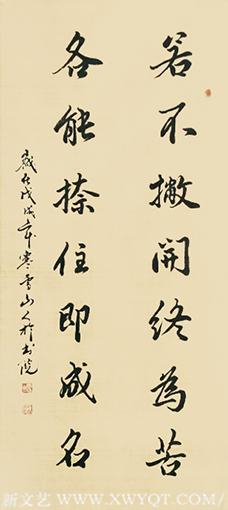 若不撇開終為苦
各能捺住即成名
歲在戊戌年寒山人於书院
新文艺 WWW.XWYQT.COM/